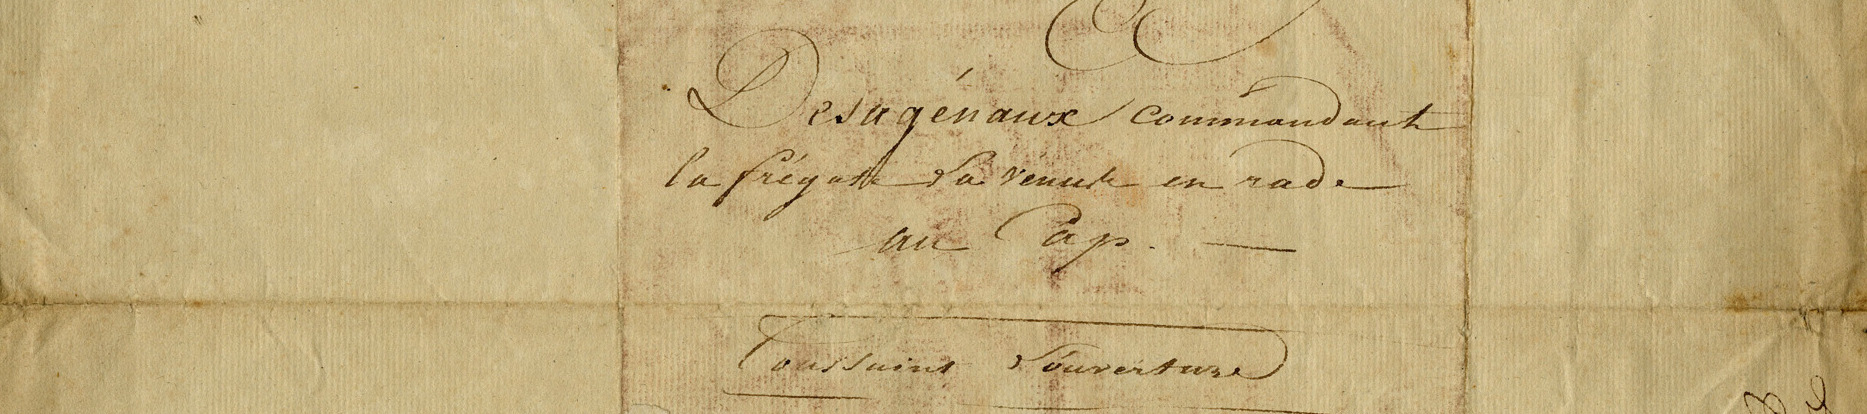 Desagénaux commandant
la frégate La Venus en rade
au Cap. —
Toussaint Louverture